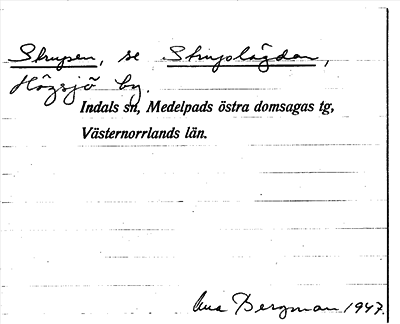 Strupen, se Struplägdan,
Högsjö by.
Indals sn, Medelpads östra domsagas tg,
Västernorrlands län.
Bergman 1947.